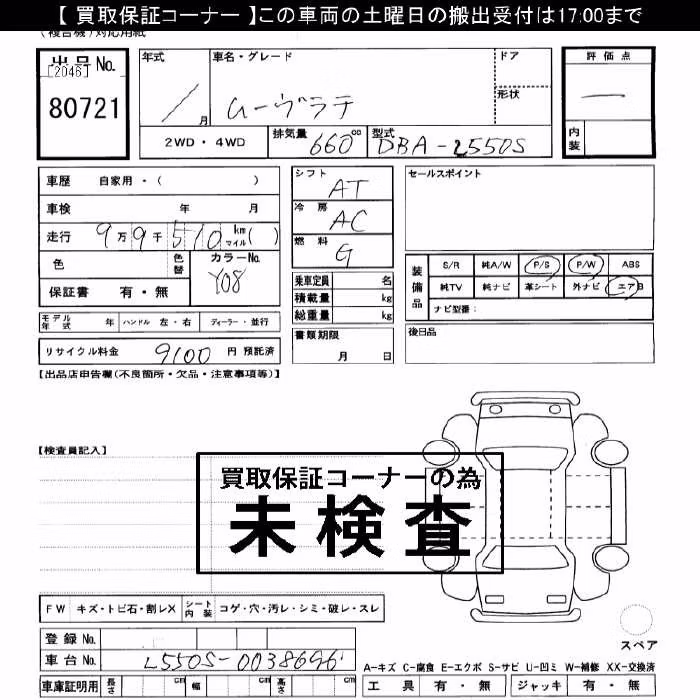 【 買取保証コーナー 】この車両の土曜日の搬出受付は17:00まで
(複合機)対応用紙
出品No.
[2046]
80721
年式
月
車名・グレード
ムーヴラテ
ドア
形状
評価点
内装
2WD・4WD
排気量 660 cc
型式 DBA-L550S
車歴 自家用・( )
車検 年 月
走行 9万9千510 km マイル( )
色
色替
カラーNo.
Y08
保証書 有・無
シフト AT
冷房 AC
燃料 G
乗車定員 名
積載量 kg
総重量 kg
セールスポイント
装備品
S/R 純A/W P/S P/W ABS
純TV 純ナビ 革シート 外ナビ エアB
ナビ型番:
モデル年式 年 ハンドル 左・右 ディーラー・並行
リサイクル料金 9100 円 預託済
書類期限
月 日
後日品
【出品店申告欄(不良箇所・欠品・注意事項等)】
【検査員記入】
買取保証コーナーの為
未検査
FW キズ・トビ石・割レX シート内装 コゲ・穴・汚レ・シミ・破レ・スレ
登録No.
車台No. L550S-0038696
車庫証明用 長さ cm 幅 cm 高さ cm
スペア
A-キズ C-腐食 E-エクボ S-サビ U-凹ミ W-補修 XX-交換済
工具 有・無 ジャッキ 有・無